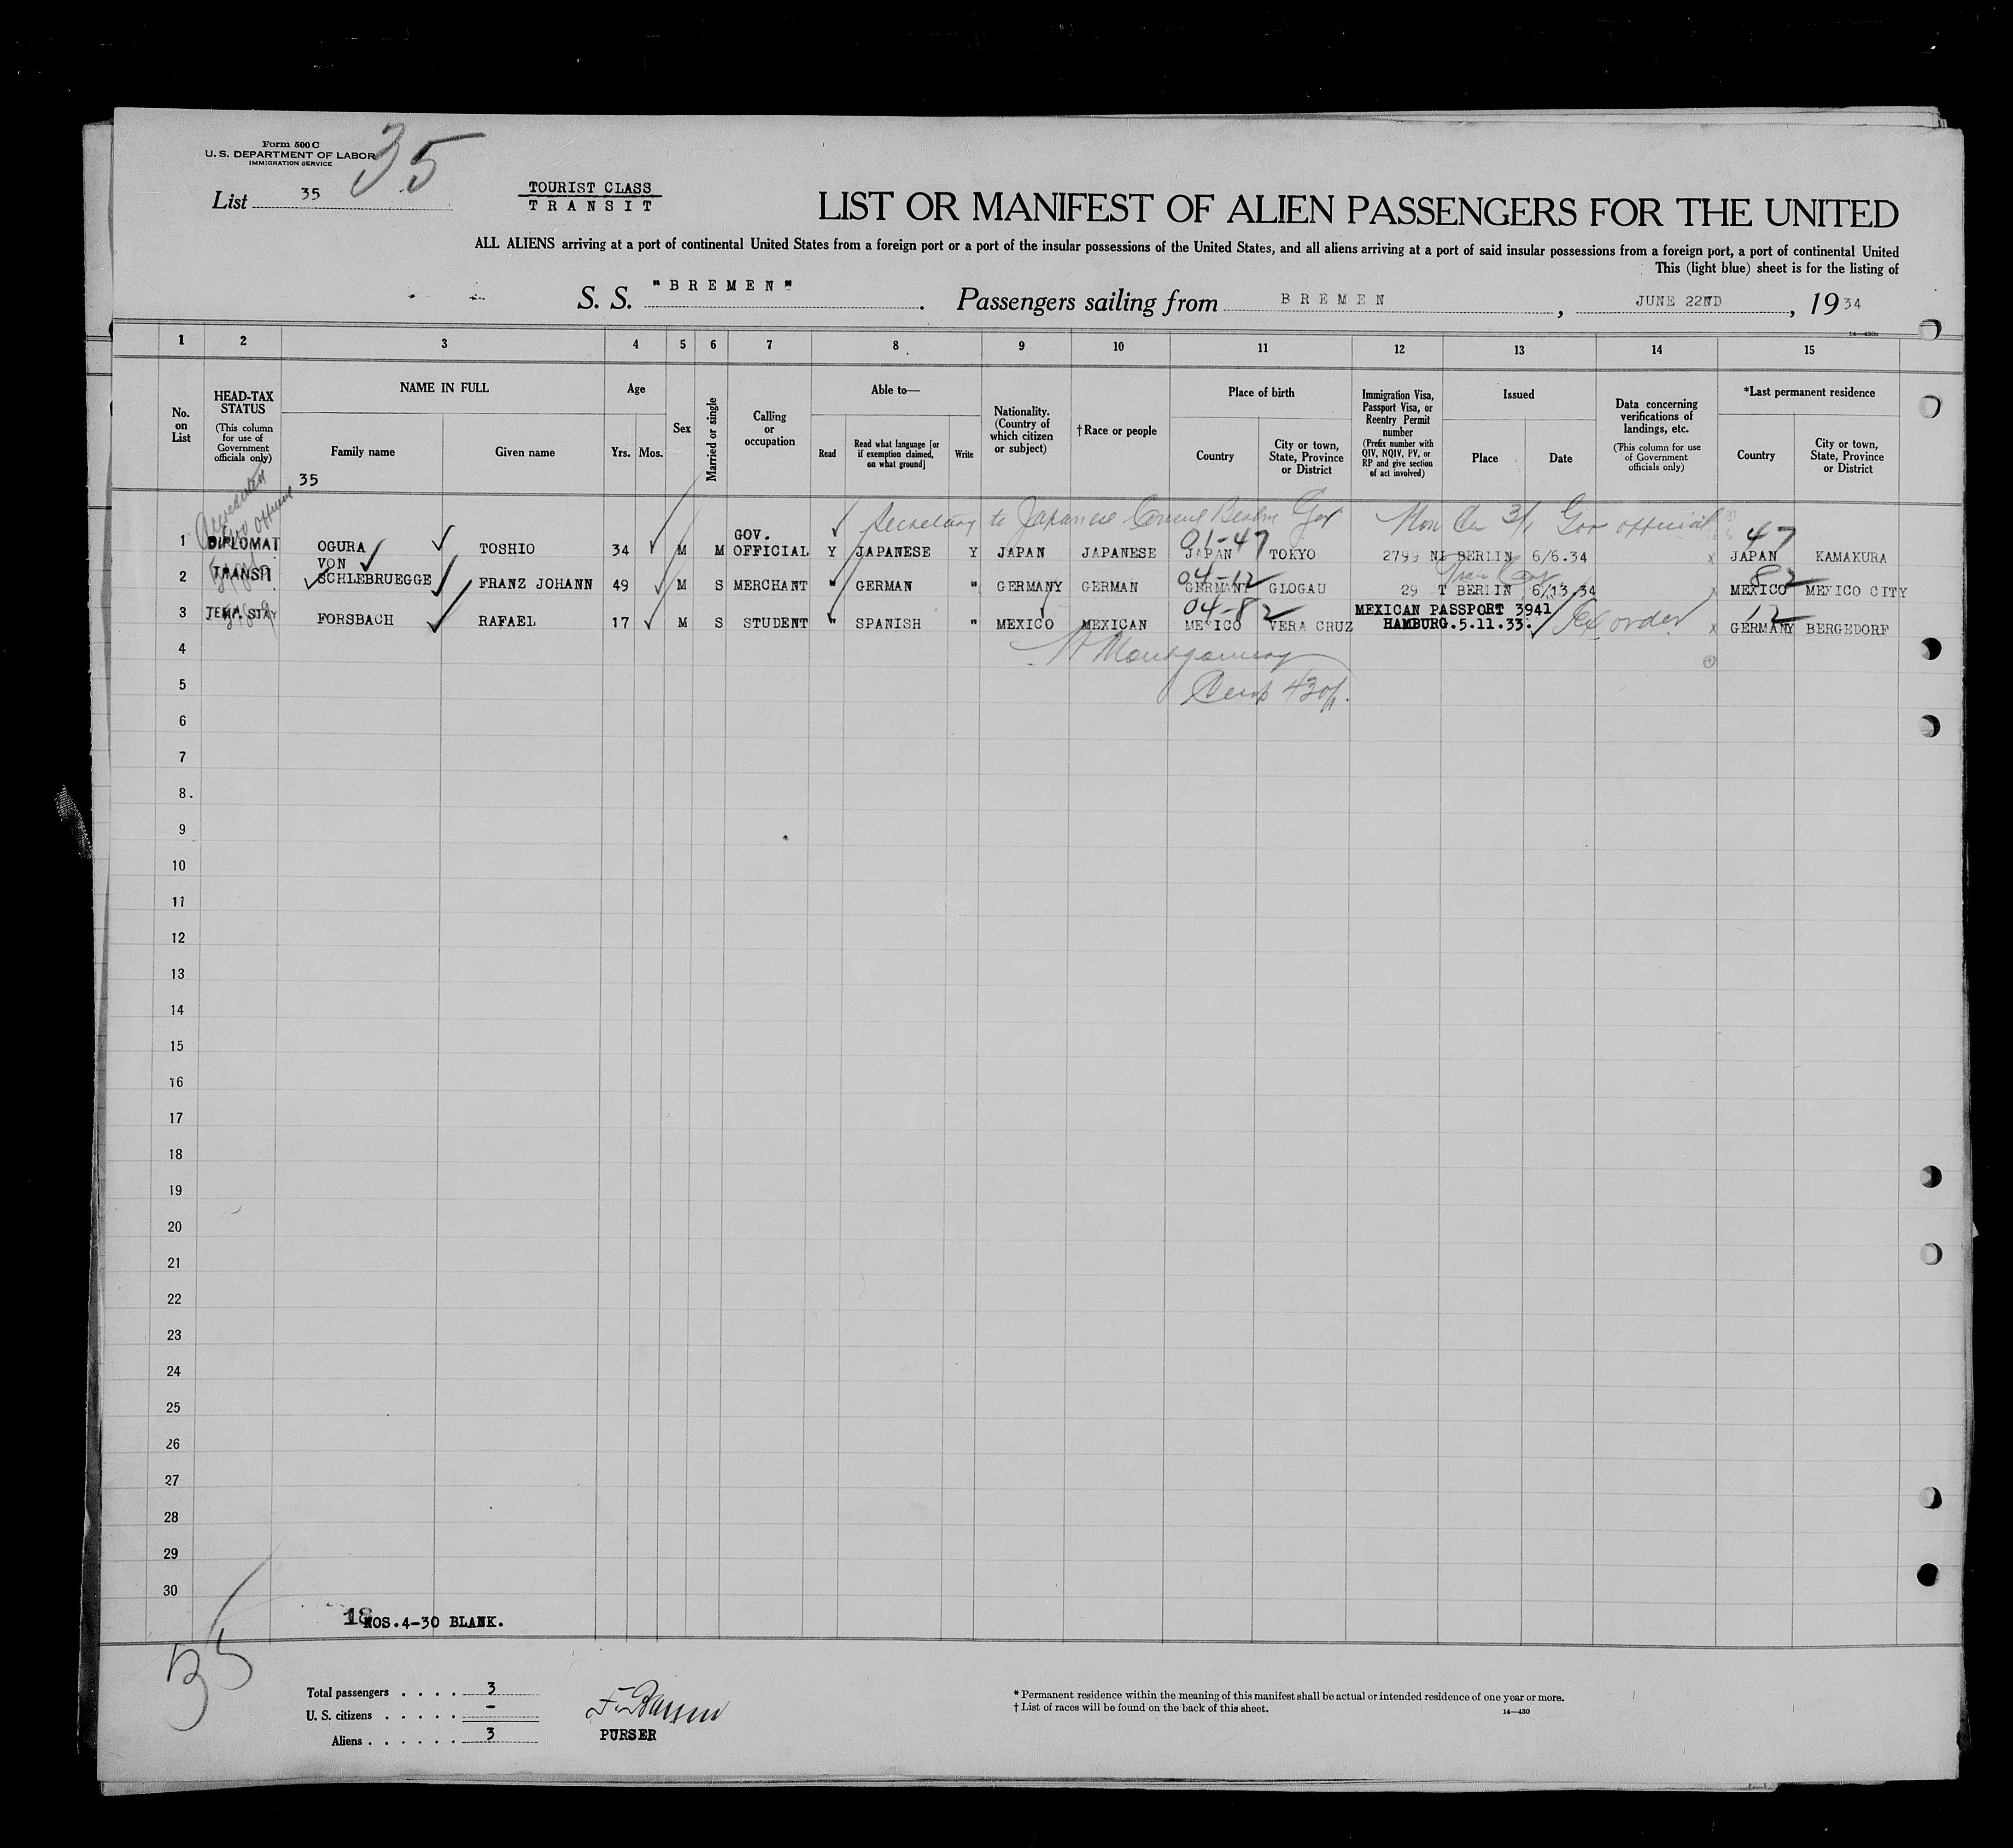 Form 500 C
U. S. DEPARTMENT OF LABOR
IMMIGRATION SERVICE
35
List 35
TOURIST CLASS
TRANSIT
LIST OR MANIFEST OF ALIEN PASSENGERS FOR THE UNITED
ALL ALIENS arriving at a port of continental United States from a foreign port or a port of the insular possessions of the United States, and all aliens arriving at a port of said insular possessions from a foreign port, a port of continental United
This (light blue) sheet is for the listing of
S. S. "BREMEN". Passengers sailing from BREMEN, JUNE 22ND, 1934
14—430c
1 2 3 4 5 6 7 8 9 10 11 12 13 14 15
No. on List
HEAD-TAX STATUS
(This column for use of Government officials only)
NAME IN FULL
Family name
Given name
35
Age
Yrs. Mos.
Sex
Married or single
Calling or occupation
Able to—
Read
Read what language [or if exemption claimed, on what ground]
Write
Nationality. (Country of which citizen or subject)
†Race or people
Place of birth
Country
City or town, State, Province or District
Immigration Visa, Passport Visa, or Reentry Permit number
(Prefix number with QIV, NQIV, PV, or RP and give section of act involved)
Issued
Place
Date
Data concerning verifications of landings, etc.
(This column for use of Government officials only)
*Last permanent residence
Country
City or town, State, Province or District
Secretary to Japanese Consul Berlin Ger Gov official
01-47 47
1 DIPLOMAT OGURA TOSHIO 34 M M GOV. OFFICIAL Y JAPANESE Y JAPAN JAPANESE JAPAN TOKYO 2799 NI BERLIN 6/6.34 x JAPAN KAMAKURA
04-12 82
2 TRANSIT VON SCHLEBRUEGGE FRANZ JOHANN 49 M S MERCHANT " GERMAN " GERMANY GERMAN GERMANY GLOGAU 29 T BERLIN 6/13.34 x MEXICO MEXICO CITY
04-82 12
3 TEMP. STAY FORSBACH RAFAEL 17 M S STUDENT " SPANISH " MEXICO MEXICAN MEXICO VERA CRUZ MEXICAN PASSPORT 3941 HAMBURG.5.11.33. Ex order x GERMANY BERGEDORF
4 Montgomery
5
6
7
8
9
10
11
12
13
14
15
16
17
18
19
20
21
22
23
24
25
26
27
28
29
30
18
NOS.4-30 BLANK.
35
Total passengers . . . . 3
U. S. citizens . . . . . -
Aliens . . . . . . 3
PURSER
* Permanent residence within the meaning of this manifest shall be actual or intended residence of one year or more.
† List of races will be found on the back of this sheet.
14—430